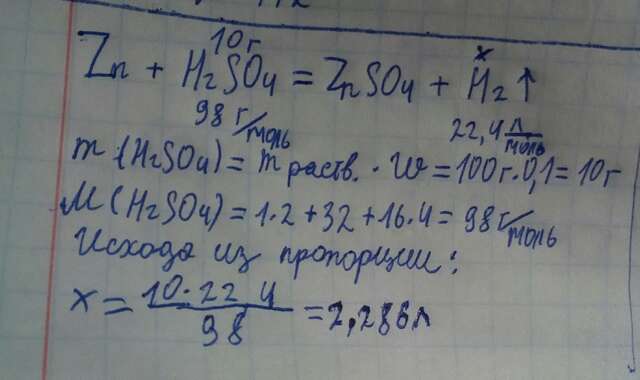 10г x
Zn + H₂SO₄ = ZnSO₄ + H₂↑
98 г/моль 22,4 л/моль
m (H₂SO₄) = m раств. · W = 100г·0,1 = 10г
M (H₂SO₄) = 1·2 + 32 + 16·4 = 98 г/моль
Исходя из пропорции:
x = 10·22,4 / 98 = 2,286л